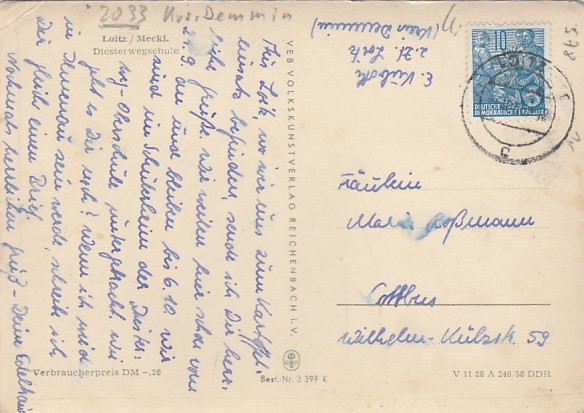 2033 Krs. Demmin
Loitz / Meckl.
Diesterwegschule
Aus Loitz, wo wir uns zum Kartoffel-
einsatz befinden, sende ich Dir herz-
liche Grüße. Wir weilen hier schon vom
2.9. an und bleiben bis 6.10. Wir
sind im Schülerheim der Diester-
weg-Oberschule untergebracht. Wie
geht es Dir noch? Wenn ich wieder
in Ilmenau sein werde, schreibe ich
Dir gleich einen Brief.
Nochmals herzlichen Gruß - Deine
Verbraucherpreis DM -,20
VEB VOLKSKUNSTVERLAG REICHENBACH I. V.
Best.-Nr. 3 399 K
E.
z. Zt. Loitz
(Kreis Demmin)
DEUTSCHE
DEMOKRATISCHE REPUBLIK
10
LOITZ
c
875
Fräulein
Maria Roßmann
Cottbus
Wilhelm-Külzstr. 59
V 11 28 A 246/58 DDR